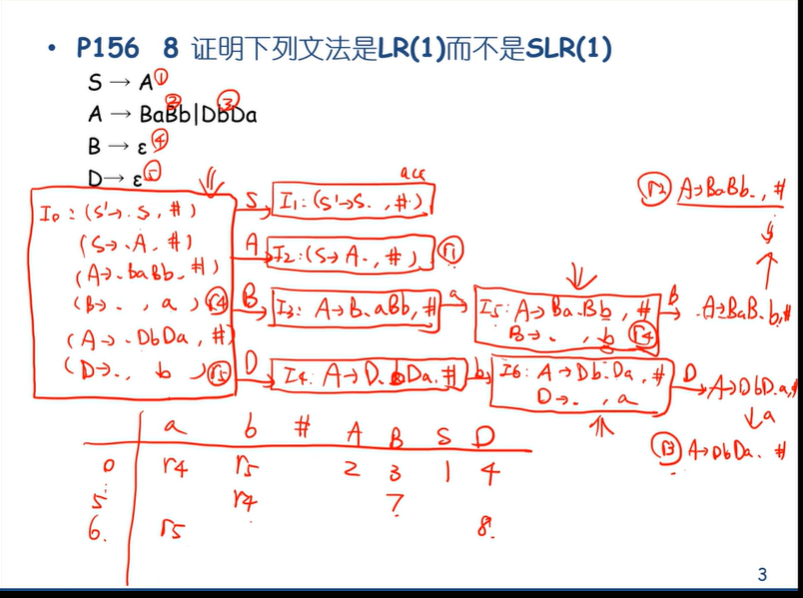 • P156 8 证明下列文法是LR(1)而不是SLR(1)
S → A ①
A → BaBb|DbDa ② ③
B → ε ④
D→ ε ⑤
I0: (S'→.S, #)
(S→.A, #)
(A→.BaBb, #)
(B→., a) r4
(A→.DbDa, #)
(D→., b) r5
S
acc
I1: (S'→S., #)
A
I2: (S→A., #) r1
B
I3: A→B.aBb, #
a
I5: A→Ba.Bb, #
B→., b r4
B
A→BaB.b, #
r2 A→BaBb., #
D
I4: A→D.bDa, #
b
I6: A→Db.Da, #
D→., a
D
A→DbD.a, #
a
r3 A→DbDa. #
a b # A B S D
0 r4 r5 2 3 1 4
5 r4 7
6. r5 8.
3